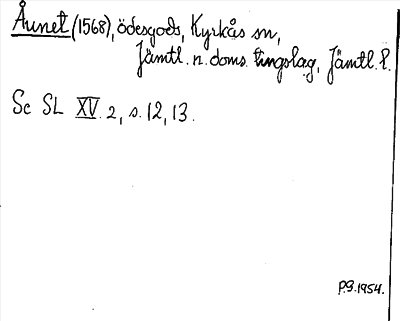 Åunet (1568), ödesgods, Kyrkås sn,
Jämtl. n. doms. tingslag, Jämtl. l.
Sc SL XV 2, s. 12, 13.
P.G. 1954.